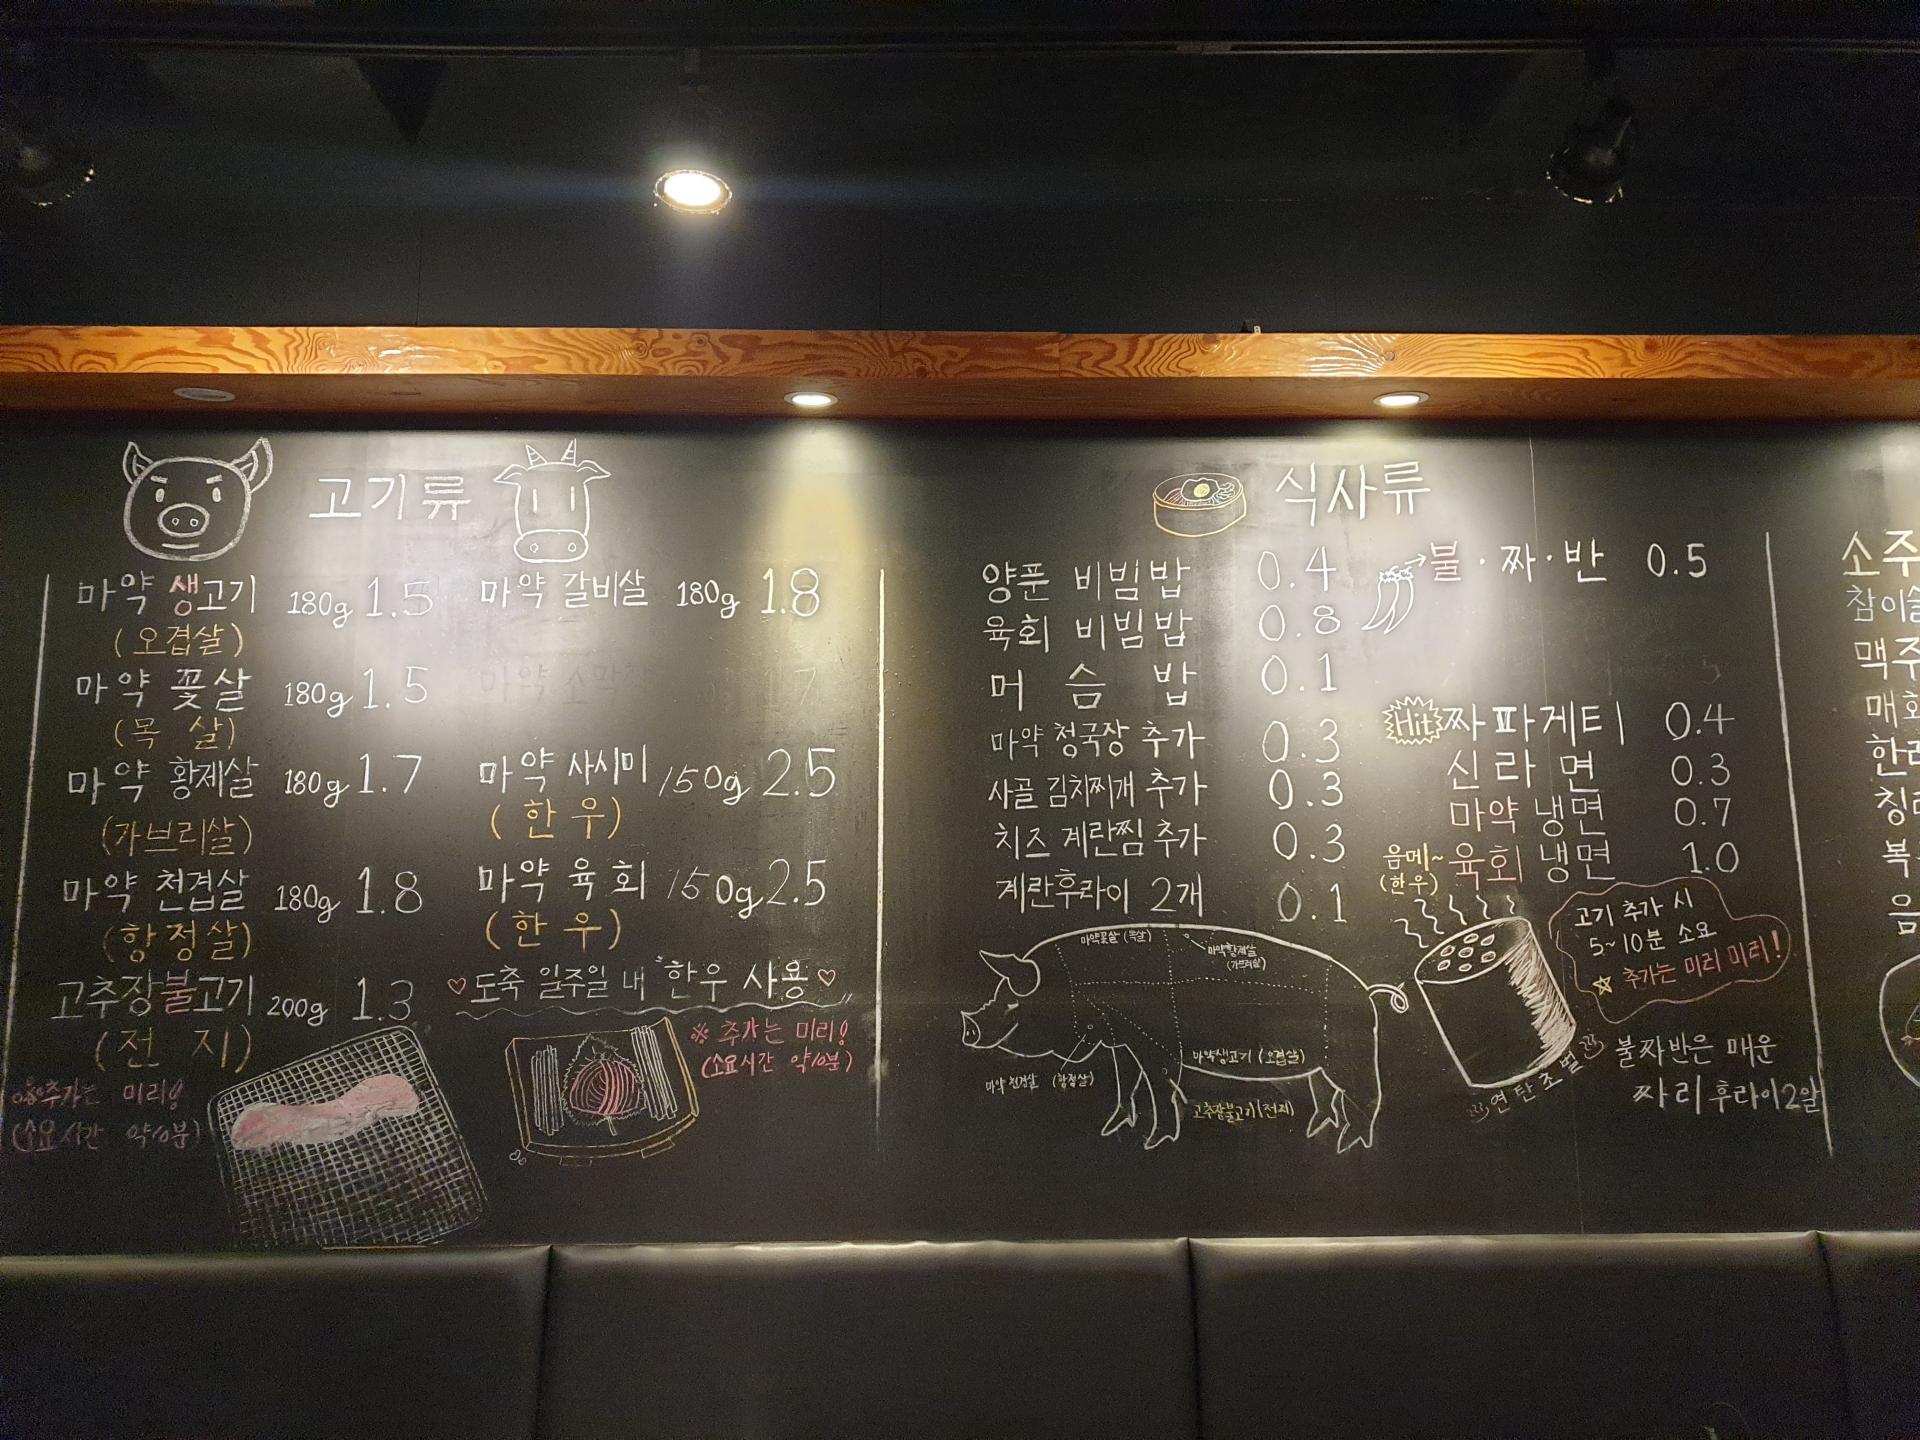 고기류
마약 생고기 180g 1.5
(오겹살)
마약 꽃살 180g 1.5
(목 살)
마약 황제살 180g 1.7
(가브리살)
마약 천겹살 180g 1.8
(항정살)
고추장불고기 200g 1.3
(전 지)
추가는 미리!
(소요시간 약10분)
마약 갈비살 180g 1.8
마약 소막창 1.7
마약 사시미 150g 2.5
(한 우)
마약 육회 150g 2.5
(한 우)
♡도축 일주일 내 "한우 사용♡
※ 추가는 미리!
(소요시간 약10분)
식사류
양푼 비빔밥 0.4
육회 비빔밥 0.8
머 슴 밥 0.1
마약 청국장 추가 0.3
사골 김치찌개 추가 0.3
치즈 계란찜 추가 0.3
계란후라이 2개 0.1
불·짜·반 0.5
Hit 짜파게티 0.4
신라면 0.3
마약 냉면 0.7
음메~ 육회 냉면 1.0
(한우)
마약꽃살 (목살)
마약황제살
(가브리살)
마약생고기 (오겹살)
마약 천겹살 (항정살)
고추장불고기(전지)
고기 추가 시
5~10분 소요
☆ 추가는 미리 미리!
연탄초벌
불짜반은 매운
짜리 후라이2알
소주
참이슬
맥주